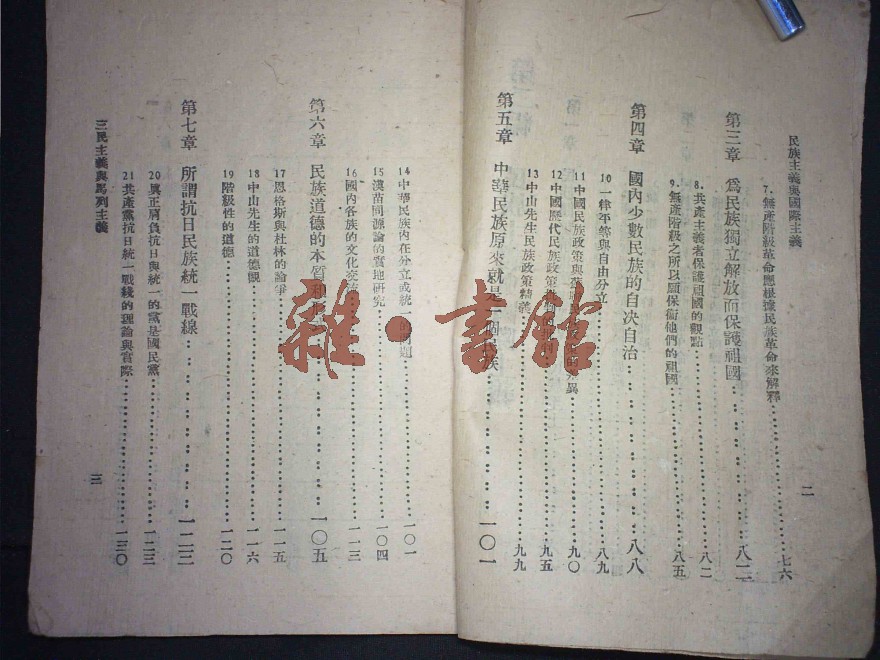 民族主義與國際主義
7.無產階級革命應根據民族革命來解釋……七六
第三章 爲民族獨立解放而保護祖國……八二
8.共產主義者保護祖國的觀點……八二
9.無產階級之所以願保衞他們的祖國……八五
第四章 國內少數民族的自决自治……八八
10一律平等與自由分立……八九
11中國民族政策與……異……九〇
12中國歷代民族政策……九五
13中山先生民族政策精義……九九
第五章 中華民族原來就是一個民族……一〇一
二
14中華民族內在分立或統一的問題……一〇一
15漢苗同源論的實地研究……一〇四
16國內各族的文化交……一一三
第六章 民族道德的本質和……一〇五
17恩格斯與杜林的論爭……一一五
18中山先生的道德觀……一一六
19階級性的道德……一二〇
第七章 所謂抗日民族統一戰線……一二二
20真正肩負抗日與統一的黨是國民黨……一二三
21共產黨抗日統一戰綫的理論與實際……一三〇
三民主義與馬列主義
三
雜·書館